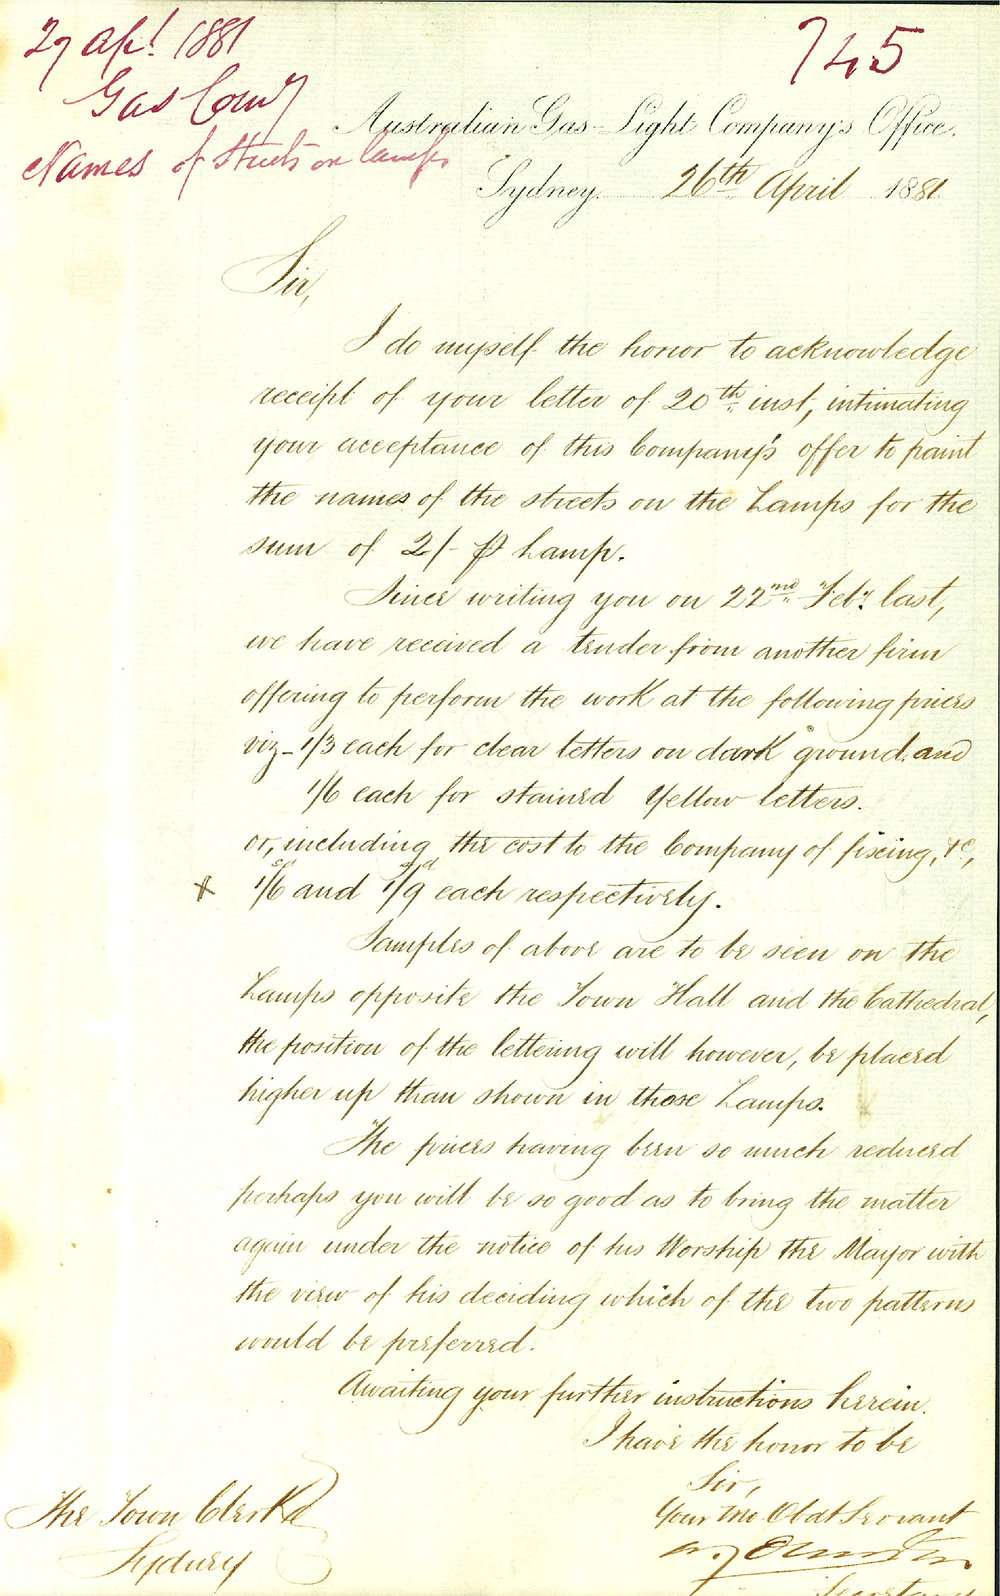 27 Apl 1881
745
Gas Comy
Names of Streets on lamps
Australian Gas-Light Company's Office.
Sydney 26th April 1881
Sir,
I do myself the honor to acknowledge
receipt of your letter of 20th inst, intimating
your acceptance of this Company's offer to paint
the names of the streets on the Lamps for the
sum of 2/- ⅌ Lamp.
Since writing you on 22nd Feby last,
we have received a tender from another firm
offering to perform the work at the following prices
viz - 1/3 each for clear letters on dark ground. and
1/6 each for stained Yellow letters.
or, including the cost to the Company of fixing, &c,
x 1/6 and 1/9 each respectively.
Samples of above are to be seen on the
Lamps opposite the Town Hall and the Cathedral,
the position of the lettering will however, be placed
higher up than shown in those Lamps.
The prices having been so much reduced
perhaps you will be so good as to bring the matter
again under the notice of his Worship the Mayor with
the view of his deciding which of the two patterns
would be preferred.
Awaiting your further instructions herein.
I have the honor to be
Sir,
Your Mo Obdt Servant
The Town Clerk
Sydney
Secretary